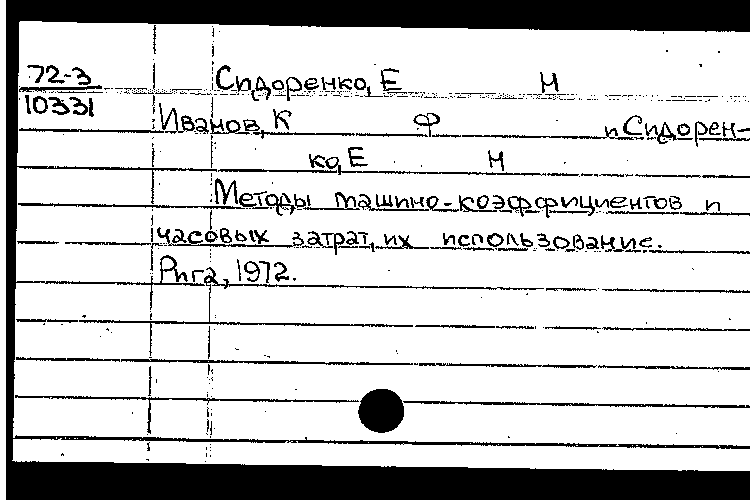 72-3
10331
Сидоренко, Е М
Иванов, К Ф и Сидорен-
ко, Е М
Методы машино-коэффициентов и
часовых затрат, их использование.
Рига, 1972.